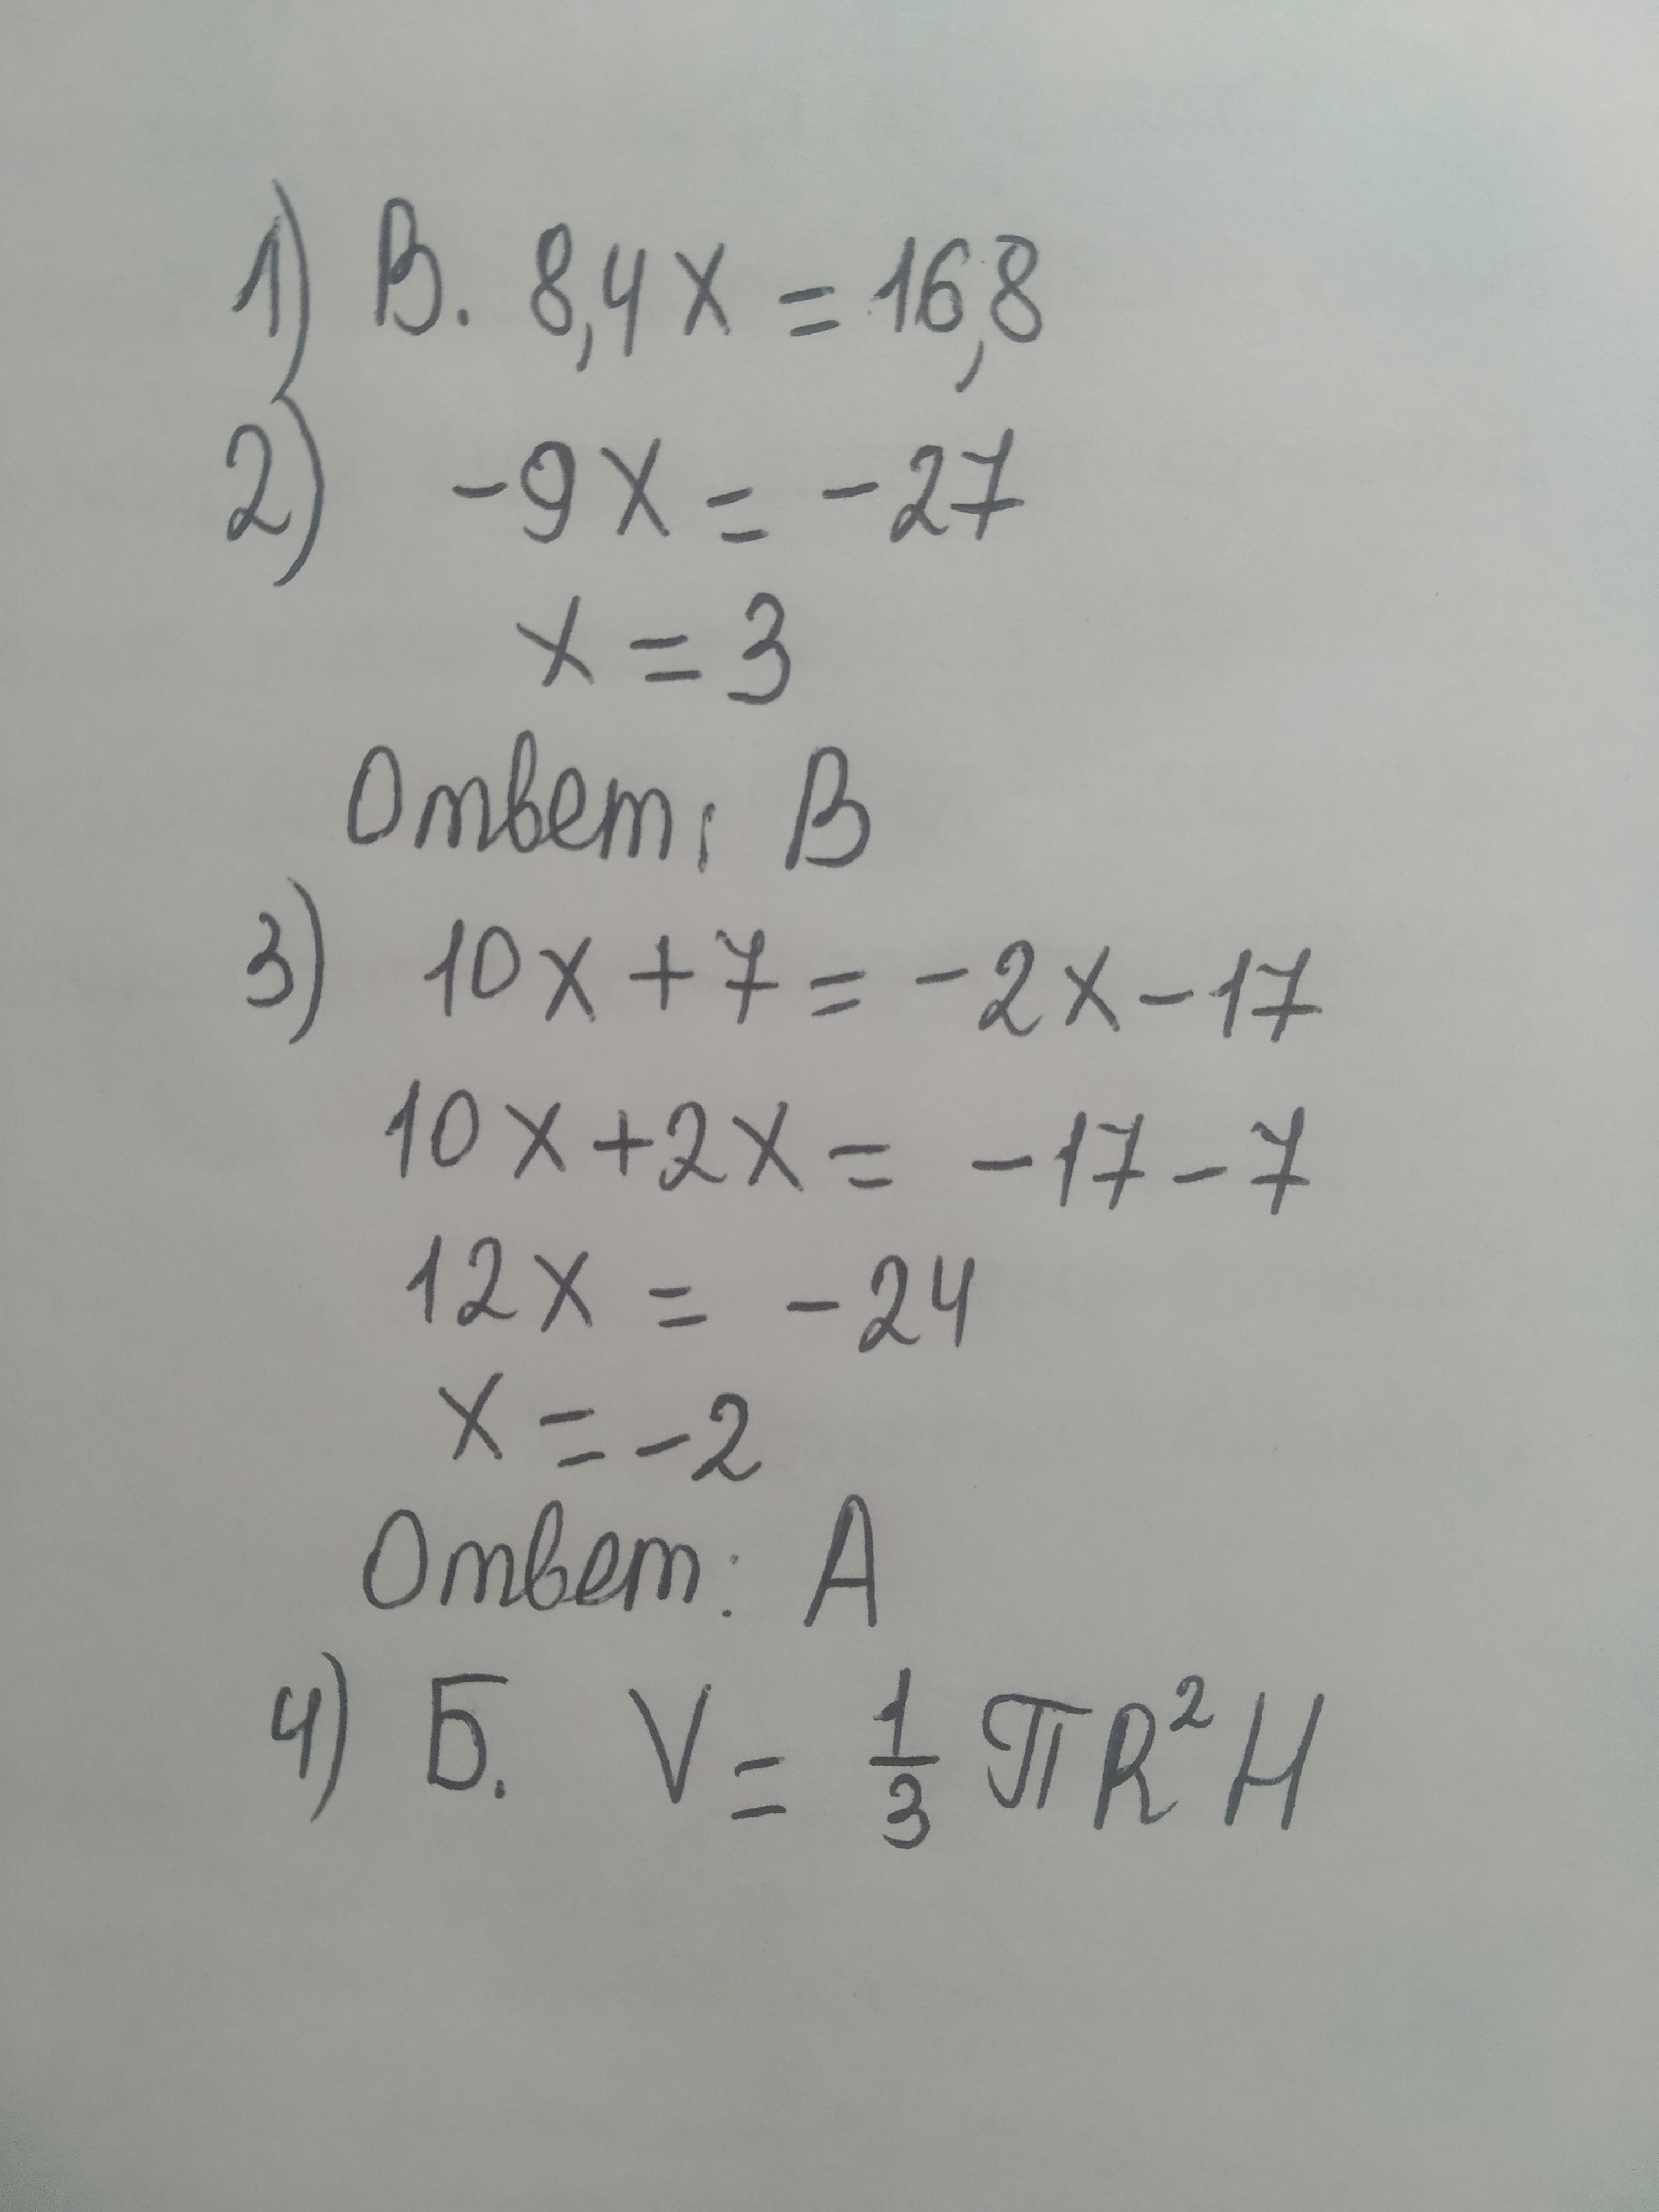 1) В. 8,4x = 16,8
2) -9x = -27
x = 3
Ответ: В
3) 10x + 7 = -2x - 17
10x + 2x = -17 - 7
12x = -24
x = -2
Ответ: А
4) Б. V = 1/3 πR²H